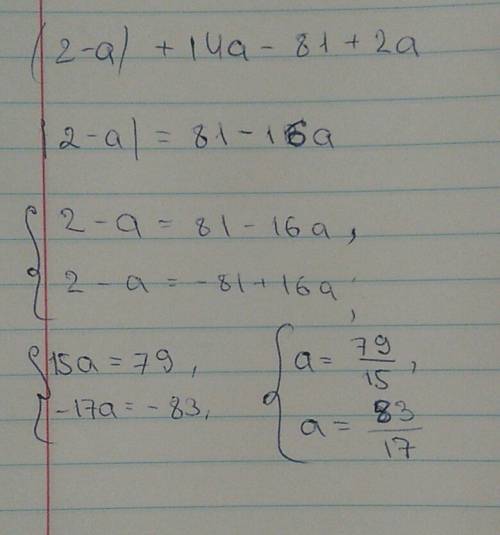 |2-a| + 14a - 81 + 2a
|2-a| = 81 - 16a
{ 2 - a = 81 - 16a,
2 - a = -81 + 16a;
{ 15a = 79,
-17a = -83,
{ a = 79/15,
a = 83/17